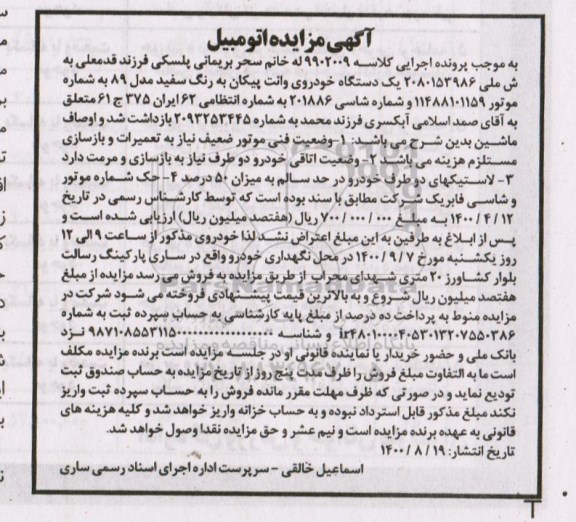 آگهی مزایده اتومبیل
به موجب پرونده اجرایی کلاسه ۹۹۰۲۰۰۹ له خانم سحر بریمانی پلسکی فرزند قدمعلی به
ش ملی ۲۰۸۰۱۵۳۹۸۶ یک دستگاه خودروی وانت پیکان به رنگ سفید مدل ۸۹ به شماره
موتور ۱۱۴۸۸۱۰۱۱۵۹ و شماره شاسی ۲۰۱۸۸۶ به شماره انتظامی ۶۲ ایران ۳۷۵ ج ۶۱ متعلق
به آقای صمد اسلامی آبکسری فرزند محمد به شماره ۲۰۹۳۲۵۳۴۴۵ بازداشت شد و اوصاف
ماشین بدین شرح می باشد. ۱- وضعیت فنی موتور ضعیف نیاز به تعمیرات و بازسازی
مستلزم هزینه می باشد ۲- وضعیت اتاقی خودرو دو طرف نیاز به بازسازی و مرمت دارد
۳- لاستیکهای دو طرف خودرو در حد سالم به میزان ۵۰ درصد ۴- حک شماره موتور
و شاسی فابریک شرکت مطابق با سند بوده است که توسط کارشناس رسمی در تاریخ
۱۴۰۰/۴/۱۲ به مبلغ ۷۰۰/۰۰۰/۰۰۰ ریال (هفتصد میلیون ریال) ارزیابی شده است و
پس از ابلاغ به طرفین به این مبلغ اعتراض نشد، لذا خودروی مذکور از ساعت ۹ الی ۱۲
روز یکشنبه مورخ ۱۴۰۰/۹/۷ در محل نگهداری خودرو واقع در ساری پارکینگ رسالت
بلوار کشاورز ۲۰ متری شهدای محراب از طریق مزایده به فروش می رسد مزایده از مبلغ
هفتصد میلیون ریال شروع و به بالاترین قیمت پیشنهادی فروخته می شود شرکت در
مزایده منوط به پرداخت ده درصد از مبلغ پایه کارشناسی به حساب سپرده ثبت به شماره
و شناسه نزد
بانک ملی و حضور خریدار یا نماینده قانونی او در جلسه مزایده است برنده مزایده مکلف
است ما به التفاوت مبلغ فروش را ظرف مدت پنج روز از تاریخ مزایده به حساب صندوق ثبت
تودیع نماید و در صورتی که ظرف مهلت مقرر مانده فروش را به حساب سپرده ثبت واریز
نکند مبلغ مذکور قابل استرداد نبوده و به حساب خزانه واریز خواهد شد و کلیه هزینه های
قانونی به عهده برنده مزایده است و نیم عشر و حق مزایده نقدا وصول خواهد شد.
تاریخ انتشار: ۱۴۰۰/۸/۱۹
اسماعیل خالقی - سرپرست اداره اجرای اسناد رسمی ساری